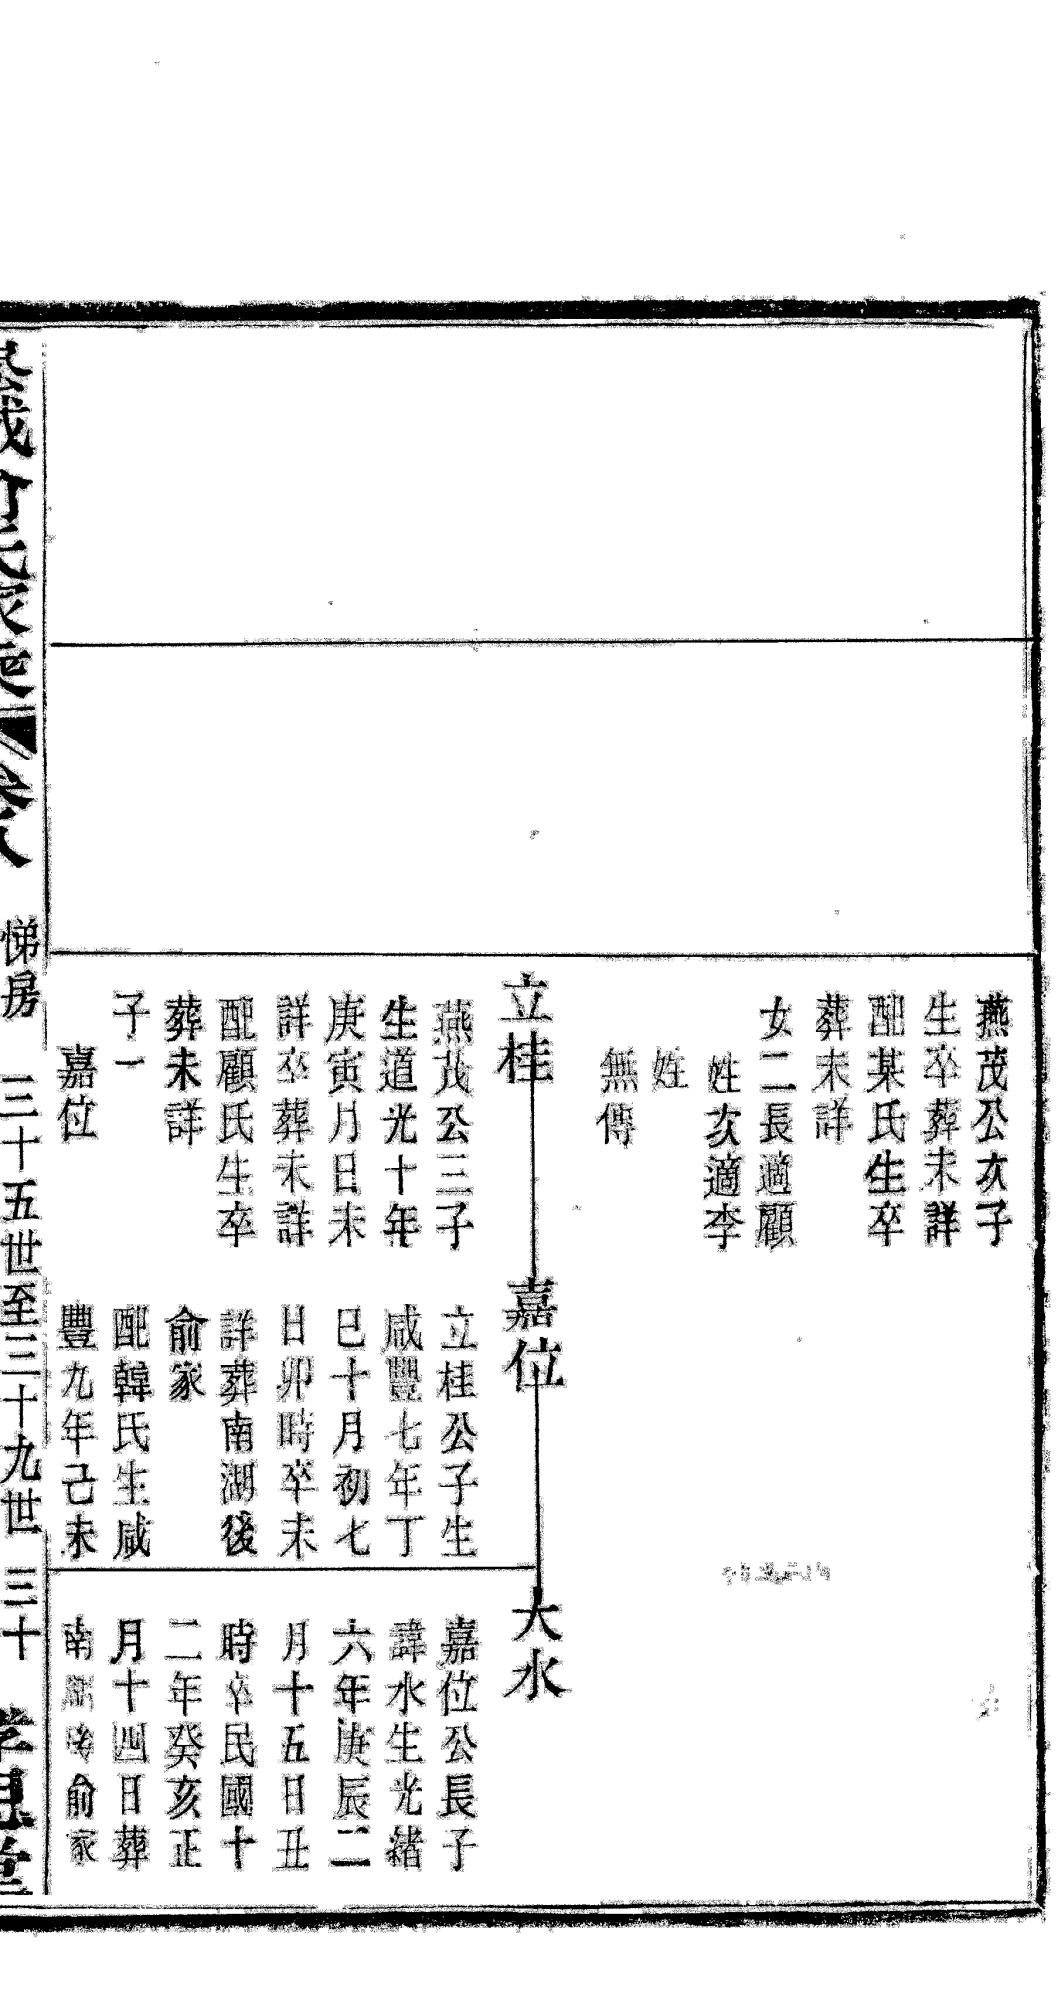 燕茂公次子
生卒葬未詳
配某氏生卒
葬未詳
女二長適顧
姓次適李
姓
無傳
立桂
燕茂公三子
生道光十年
庚寅月日未
詳卒葬未詳
配顧氏生卒
葬未詳
子一
嘉位
嘉位
立桂公子生
咸豐七年丁
巳十月初七
日卯時卒未
詳葬南湖後
俞家
配韓氏生咸
豐九年己未
大水
嘉位公長子
諱水生光緒
六年庚辰二
月十五日丑
時卒民國十
二年癸亥正
月十四日葬
南湖後俞家
氏家 卷八 悌房 三十五世至三十九世 三十 孝思堂